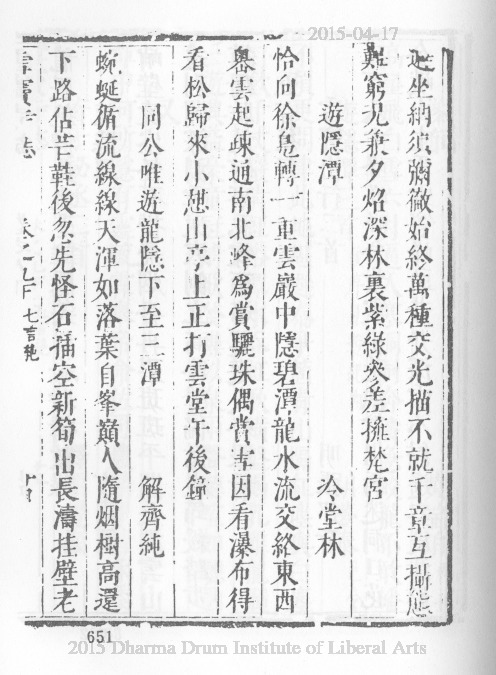 2015-04-17
坐納須彌徹始終萬種交光描不就千章互攝態
難窮尤兼夕焰深林裏紫綠參差擁梵宮
遊隱潭 冷堂林
恰向徐鳧轉一重雲巖中隱碧潭龍水流交絡東西
嶴雲起疎通南北峰為賞驪珠偶賞寺因看瀑布得
看松歸來小憇山亭上正打雲堂午後鐘
同公唯遊龍隱下至三潭 解齊純
蜿蜒循流線線天渾如落葉自峯巔人隨烟樹高還
下路佔芒鞋後忽先怪石插空新筍出長濤挂壁老
雪竇寺誌 卷之九下 七言苑 十四
651
2015 Dharma Drum Institute of Liberal Arts